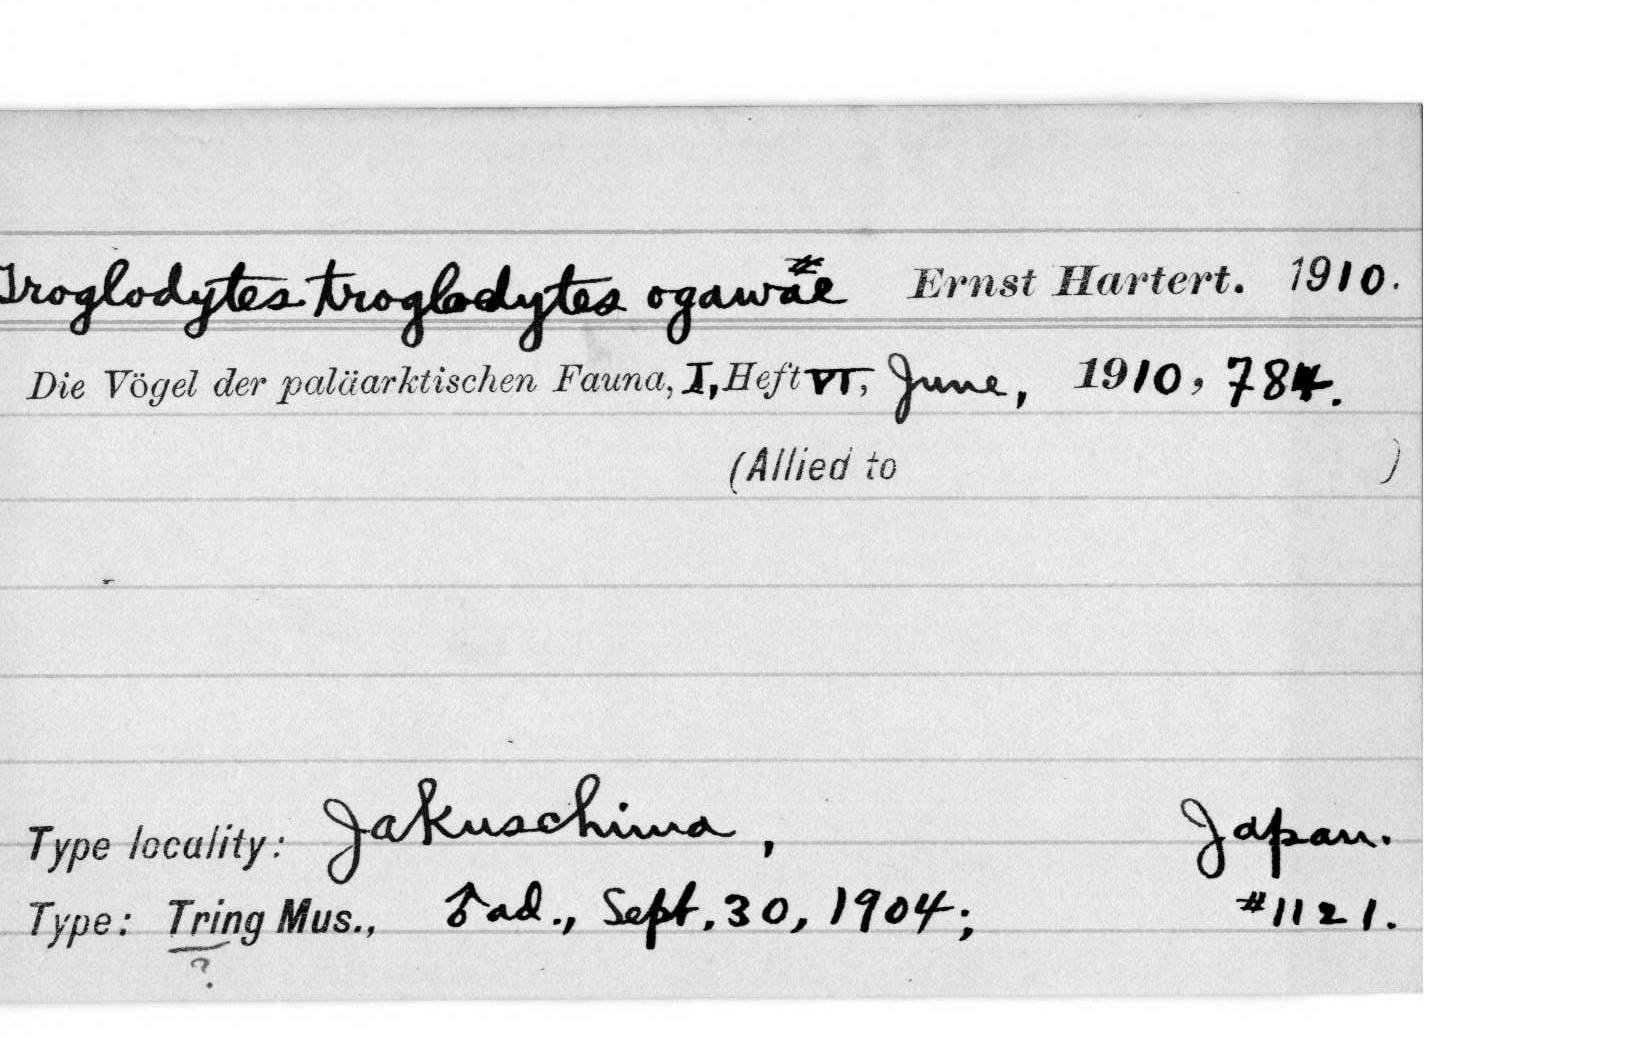 Troglodytes troglodytes ogawae # Ernst Hartert. 1910.
Die Vögel der paläarktischen Fauna, I, Heft VI, June, 1910, 784.
(Allied to )
Type locality: Jakuschima, Japan.
Type: Tring Mus., ♂ ad., Sept. 30, 1904; #1121.
?